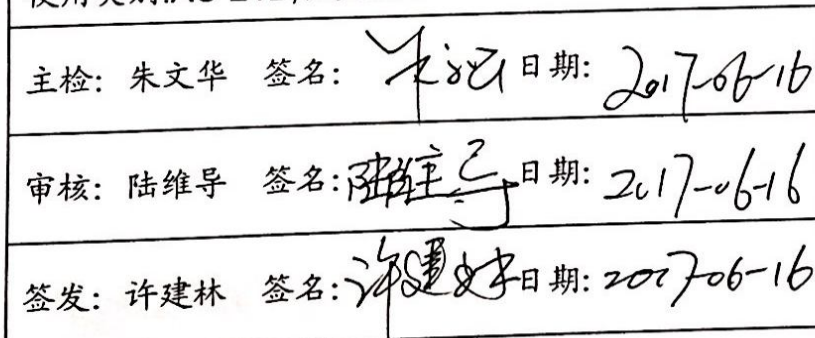 主检: 朱文华 签名: 朱文华 日期: 2017-06-16
审核: 陆维导 签名: 陆维导 日期: 2017-06-16
签发: 许建林 签名: 许建林 日期: 2017-06-16